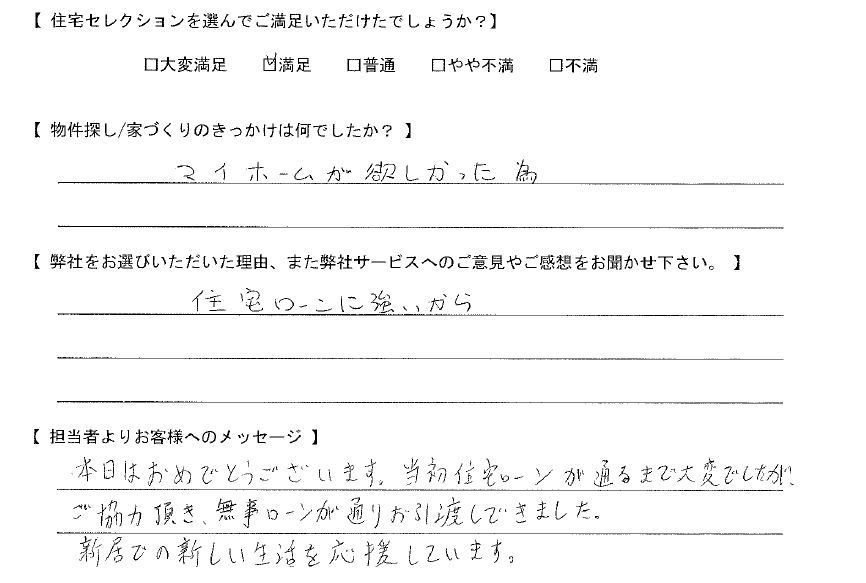 【 住宅セレクションを選んでご満足いただけたでしょうか？】
□大変満足 ☑満足 □普通 □やや不満 □不満
【 物件探し/家づくりのきっかけは何でしたか？ 】
マイホームが欲しかった為
【 弊社をお選びいただいた理由、また弊社サービスへのご意見やご感想をお聞かせ下さい。 】
住宅ローンに強いから
【 担当者よりお客様へのメッセージ 】
本日はおめでとうございます。当初住宅ローンが通るまで大変でしたが、
ご協力頂き、無事ローンが通りお引渡しできました。
新居での新しい生活を応援しています。